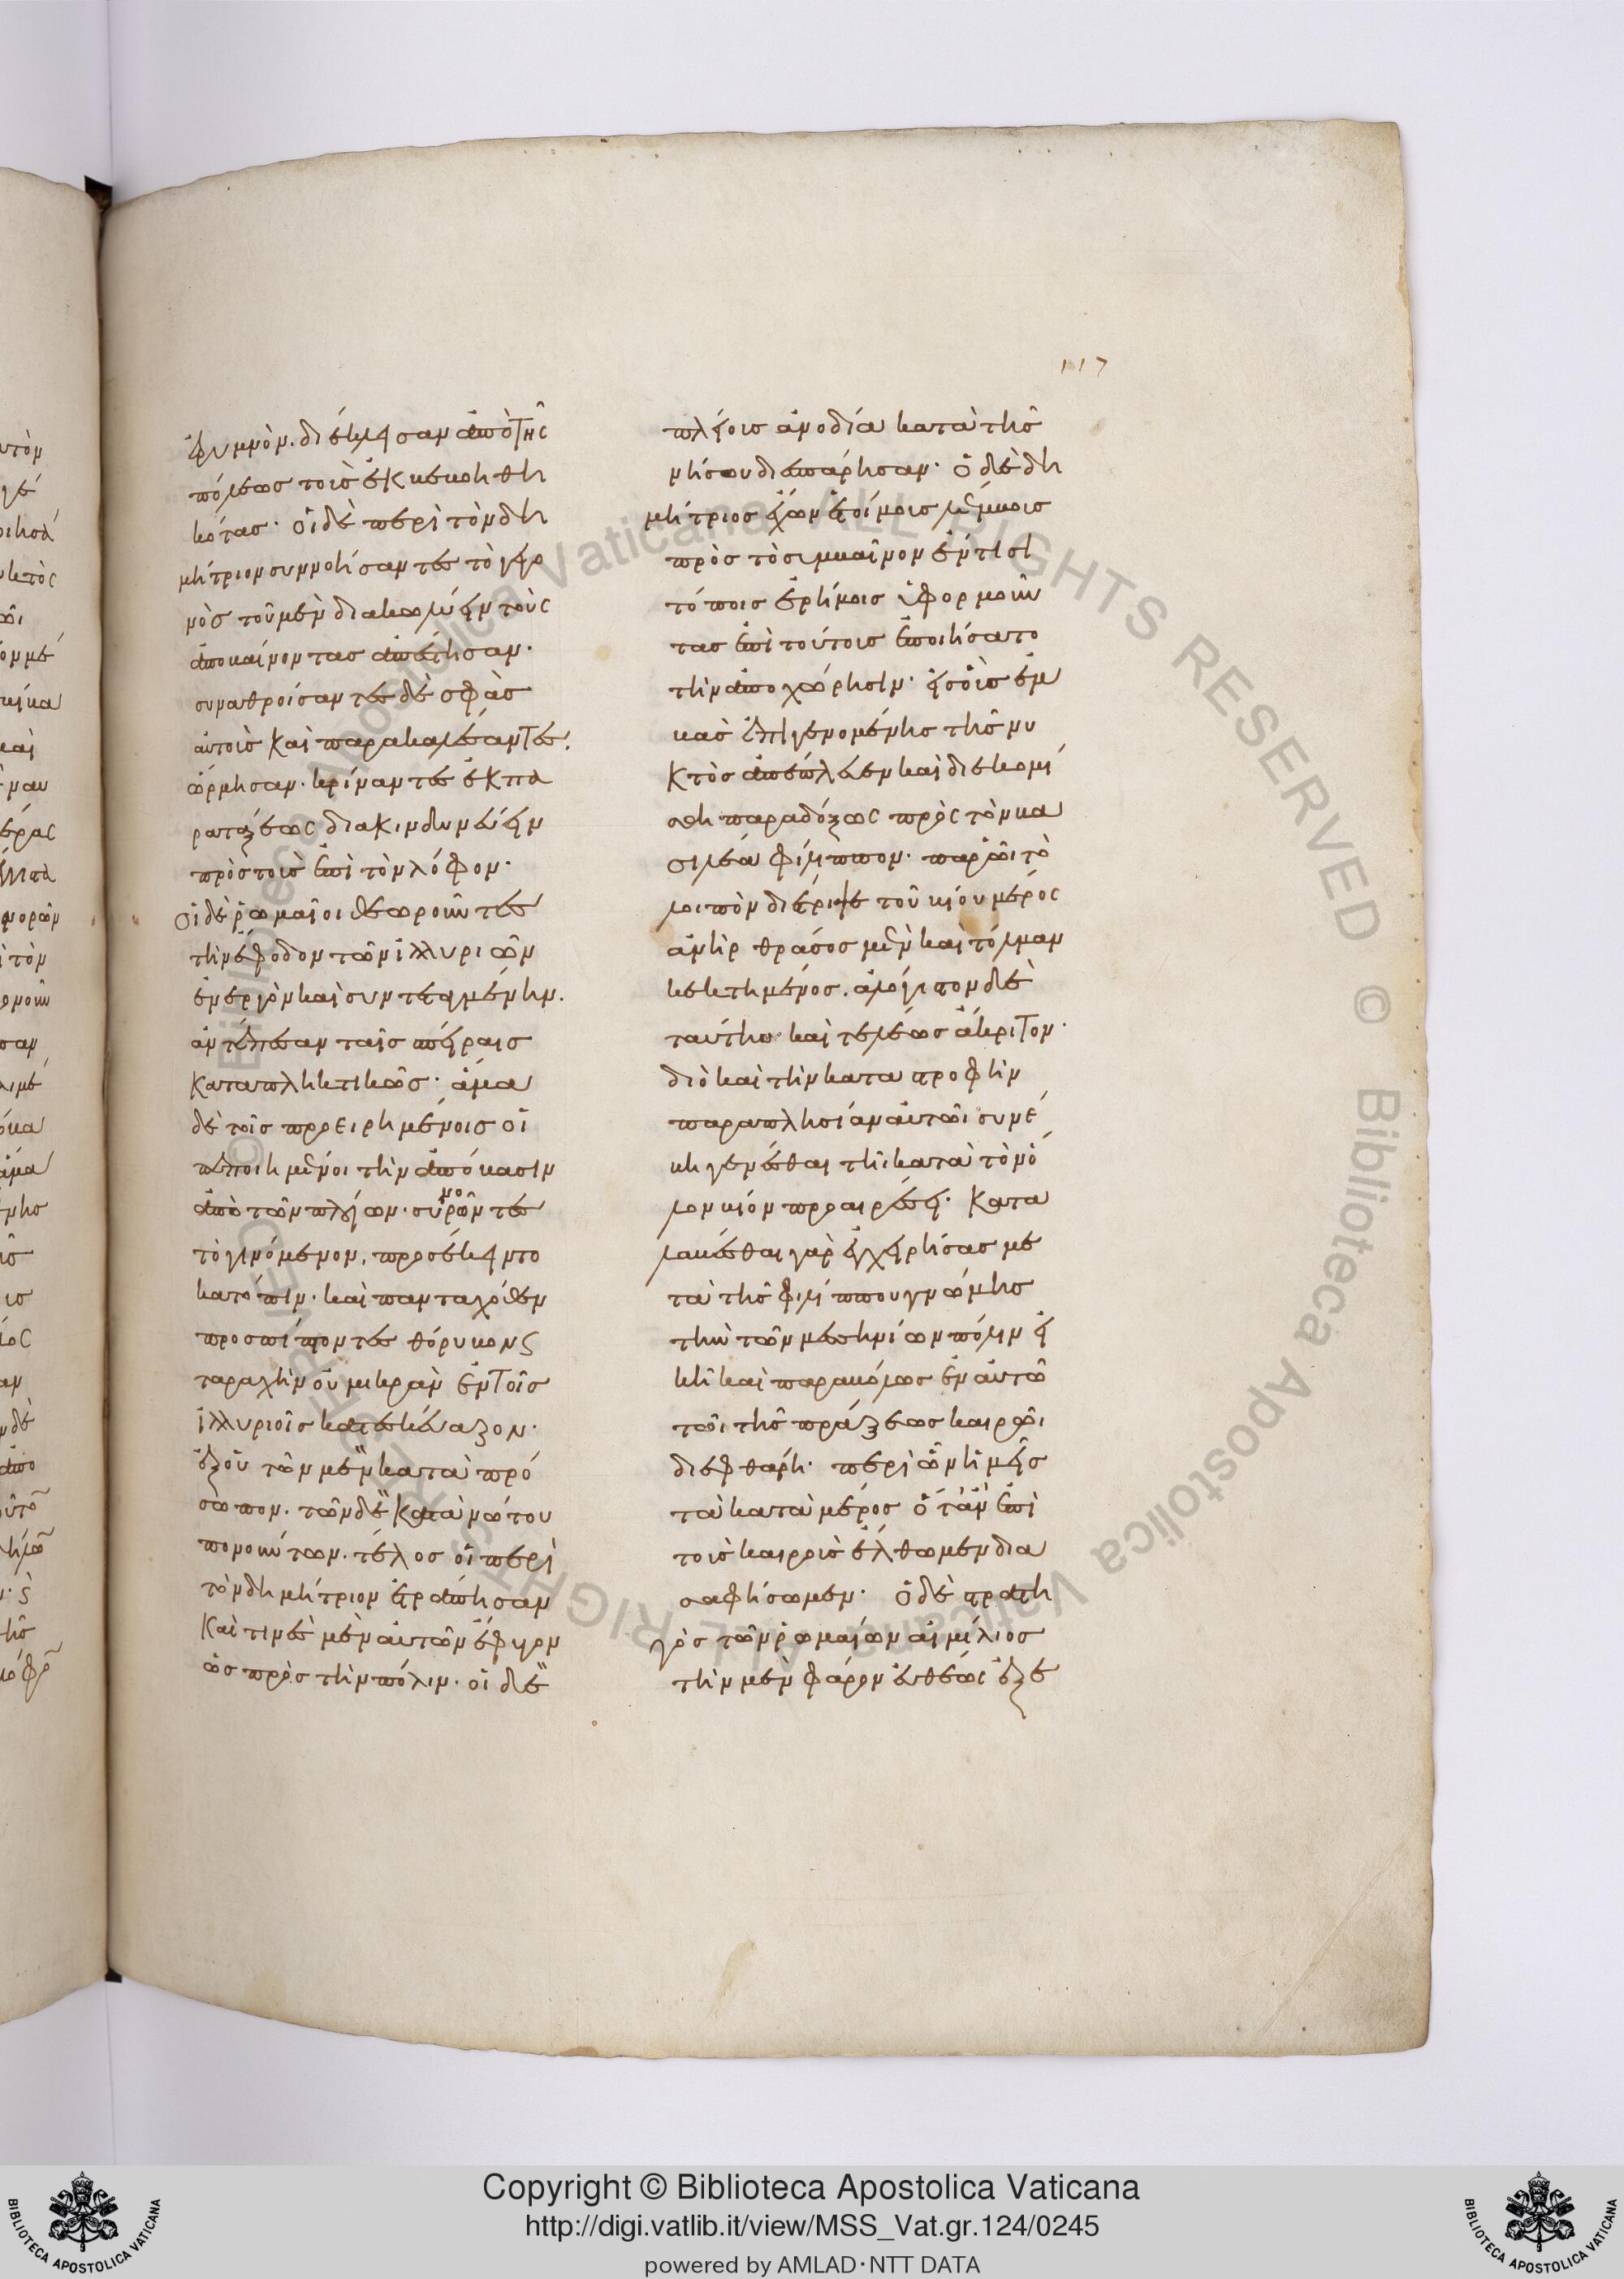 ἐρυμνὸν. διέκλεισαν ἀπὸ τῆς
πόλεως τοὺς ἐκβεβοηθη
κότας· οἱ δὲ περὶ τὸν δη
μήτριον συννοήσαντες τὸ γεγο
νὸς τοῦ μὲν διακωλύειν τοὺς
ἀποβαίνοντας ἀπέστησαν·
συναθροίσαντες δὲ σφᾶς
αὐτοὺς καὶ παρακαλέσαντες.
ὥρμησαν· κρίναντες ἐκ πα
ρατάξεως διακινδυνεύειν
πρὸς τοὺς ἐπὶ τὸν λόφον·
οἱ δὲ ῥωμαῖοι θεωροῦντες
τὴν ἔφοδον τῶν ἰλλυριῶν
ἐνεργὸν καὶ συντεταγμένην.
ἀντέπεσαν ταῖς σπείραις
καταπληκτικῶς· ἅμα
δὲ τοῖς προειρημένοις οἱ
πεποιημένοι τὴν ἀπόβασιν
ἀπὸ τῶν πλοίων· συνορῶντες
τὸ γινόμενον, προσέκειντο
κατόπιν· καὶ πανταχόθεν
προσπίπτοντες θόρυβον ϛ
ταραχὴν οὐ μικρὰν ἐν τοῖς
ἰλλυριοῖς κατεσκεύαζον·
ἐξ οὗ τῶν μὲν κατὰ πρό
σωπον. τῶν δὲ κατὰ νώτου
πονούντων. τέλος οἱ περὶ
τὸν δημήτριον ἐτράπησαν
καί τινες μὲν αὐτῶν ἔφυγον
ὡς πρὸς τὴν πόλιν· οἱ δὲ
117
πλείους ἀνοδία κατὰ τῆς
νήσου διεσπάρησαν· ὁ δὲ δη
μήτριος ἔχων ἑτοίμους λέμβους
πρὸς τὸ συμβαῖνον ἔν τισι
τόποις ἐρήμοις ὑφορμοῦν
τας ἐπὶ τούτοις ἐποιήσατο
τὴν ἀποχώρησιν· εἰς οὓς ἐμ
βὰς ἐπιγενομένης τῆς νυ
κτὸς ἀπέπλευσεν καὶ διεκομί
σθη παραδόξως πρὸς τὸν βα
σιλέα φίλιππον· παρ' ὧι τὸ
λοιπὸν διέτριψε τοῦ βίου μέρος
ἀνὴρ θράσος μὲν καὶ τόλμαν
κεκτημένος. ἀλόγιστον δὲ
ταύτην καὶ τελέως ἄκριτον·
διὸ καὶ τὴν καταστροφὴν
παραπλησίαν αὐτῶι συνέ
βη γενέσθαι τῆι κατὰ τὸν ὅ
λον βίον προαιρέσει· κατα
λαβέσθαι γὰρ ἐγχειρήσας με
τὰ τῆς φιλίππου γνώμης
τὴν τῶν μεσσηνίων πόλιν εἰ
κῆ καὶ παραβόλως ἐν αὐτῶ
τῶι τῆς πράξεως καιρῶι
διεφθάρη· περὶ ὧν ἡμεῖς
τὰ κατὰ μέρος ὅταν ἐπὶ
τοὺς καιροὺς ἔλθωμεν δια
σαφήσωμεν· ὁ δὲ στρατη
γὸς τῶν ῥωμαίων αἰμίλιος
τὴν μὲν φάρον εὐθέως ἐξ ἐ
Copyright © Biblioteca Apostolica Vaticana
http://digi.vatlib.it/view/MSS_Vat.gr.124/0245
powered by AMLAD·NTT DATA